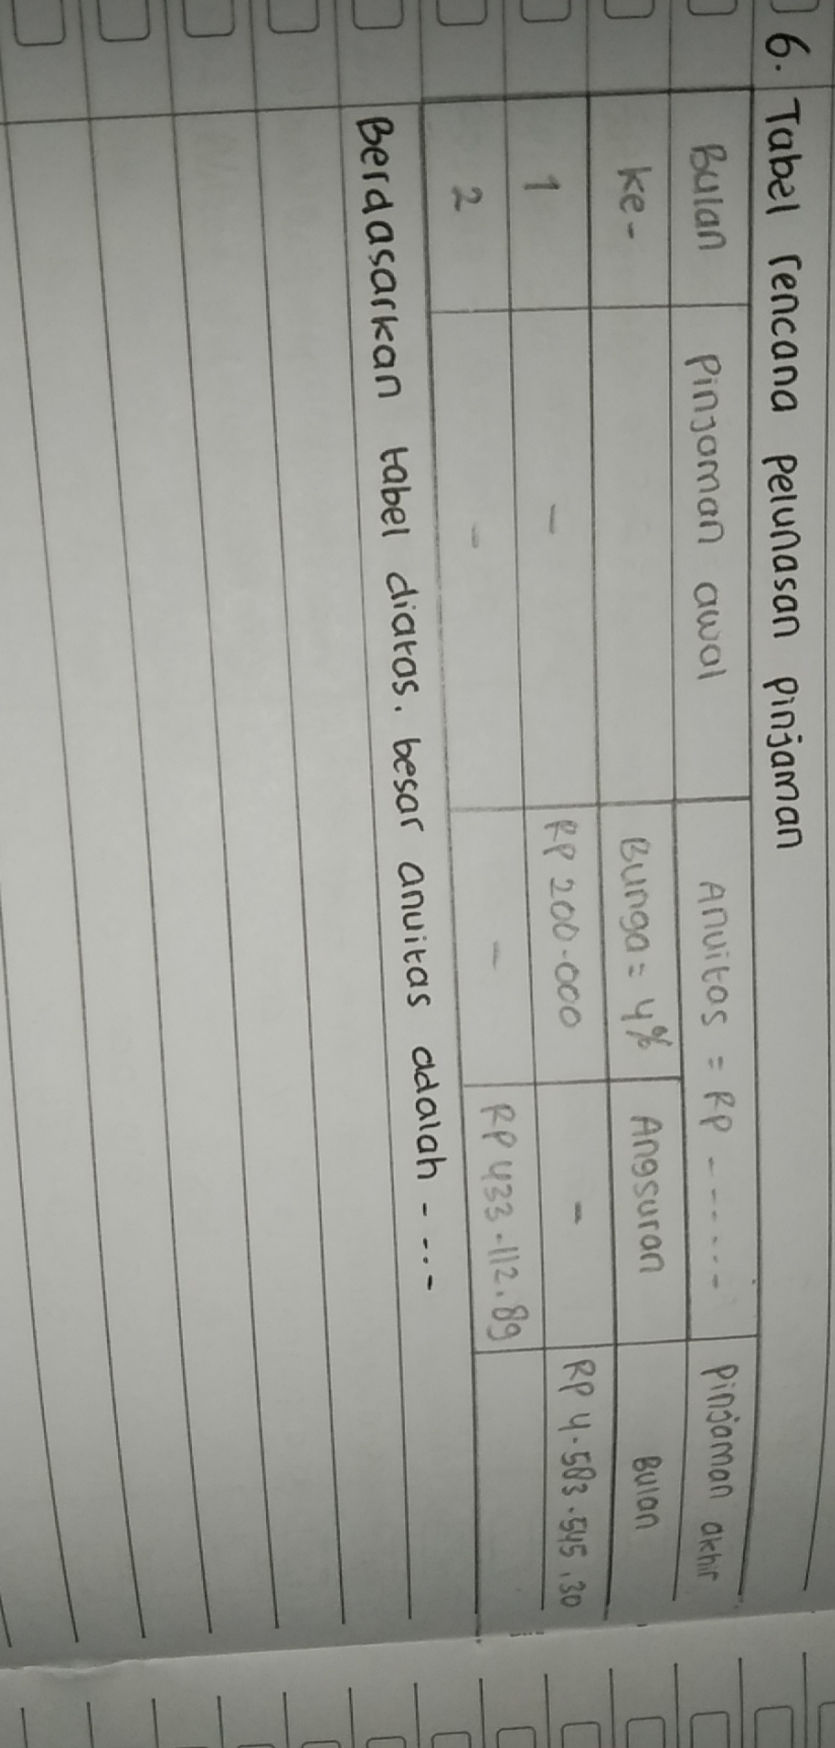 6. Tabel rencana Pelunasan Pinjaman
Bulan Pinjaman awal Anuitas = RP - - - . . - Pinjaman akhir
ke- Bunga = 4% Angsuran Bulan
1 - RP 200.000 - RP 4.583.545,30
2 - - RP 433.112,89
Berdasarkan tabel diatas, besar anuitas adalah - ... -